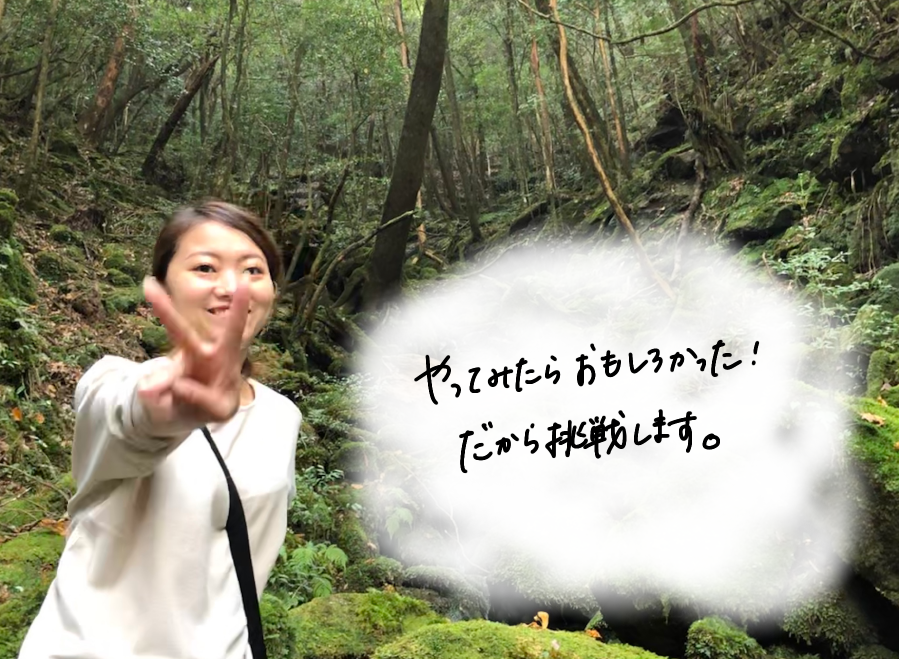 やってみたらおもしろかった!
だから挑戦します。